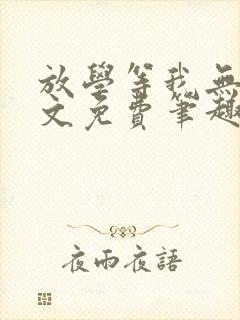 放學等我無
文免費筆趣
夜雨夜語